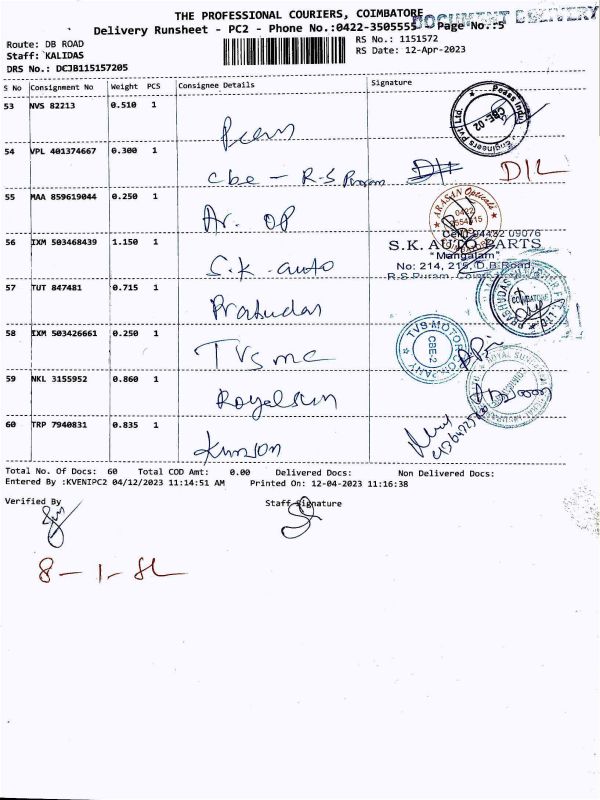 THE PROFESSIONAL COURIERS, COIMBATORE
DOCUMENT DELIVERY
Delivery Runsheet - PC2 - Phone No.:0422-3505555 Page No.:5
Route: DB ROAD
RS No.: 1151572
Staff: KALIDAS
RS Date: 12-Apr-2023
DRS No.: DCJB115157205
S No Consignment No Weight PCS Consignee Details Signature
53 NVS 82213 0.510 1
Peass Indu
Engineers Pvt Ltd.
CBE-02
54 VPL 401374667 0.300 1
cbe - R-S Puram
D/L
55 MAA 859619044 0.250 1
Ar. OP
ARASAN Opticals
0422
Cell: 94432 09076
56 IXM 503468439 1.150 1
S.k. auto
S.K. AUTO PARTS
"Mangalam"
No: 214, 215, D.B.Road,
R.S.Puram,
57 TUT 847481 0.715 1
Prahudas
COIMBATORE
58 IXM 503426661 0.250 1
TVS mc
TVS MOTOR COMPANY
CBE-2
59 NKL 3155952 0.860 1
Royalsun
ROYAL SUNDARAM
60 TRP 7940831 0.835 1
Total No. Of Docs: 60 Total COD Amt: 0.00 Delivered Docs: Non Delivered Docs:
Entered By :KVENIPC2 04/12/2023 11:14:51 AM Printed On: 12-04-2023 11:16:38
Verified By Staff Signature
8-1-8L